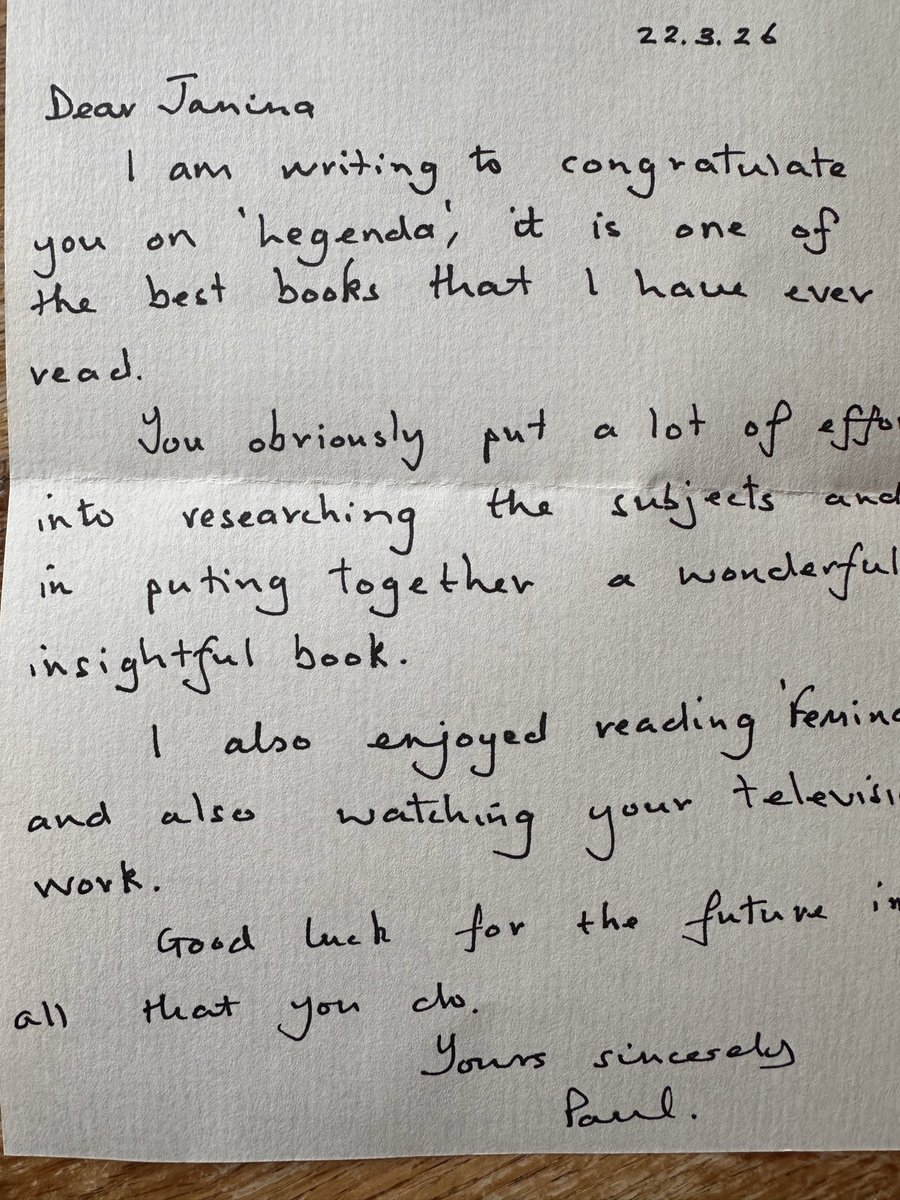 22.3.26
Dear Janina
I am writing to congratulate
you on 'Legenda', it is one of
the best books that I have ever
read.
You obviously put a lot of effo
into researching the subjects and
in puting together a wonderful
insightful book.
I also enjoyed reading 'Femina
and also watching your televisi
work.
Good luck for the future in
all that you do.
Yours sincerely
Paul.